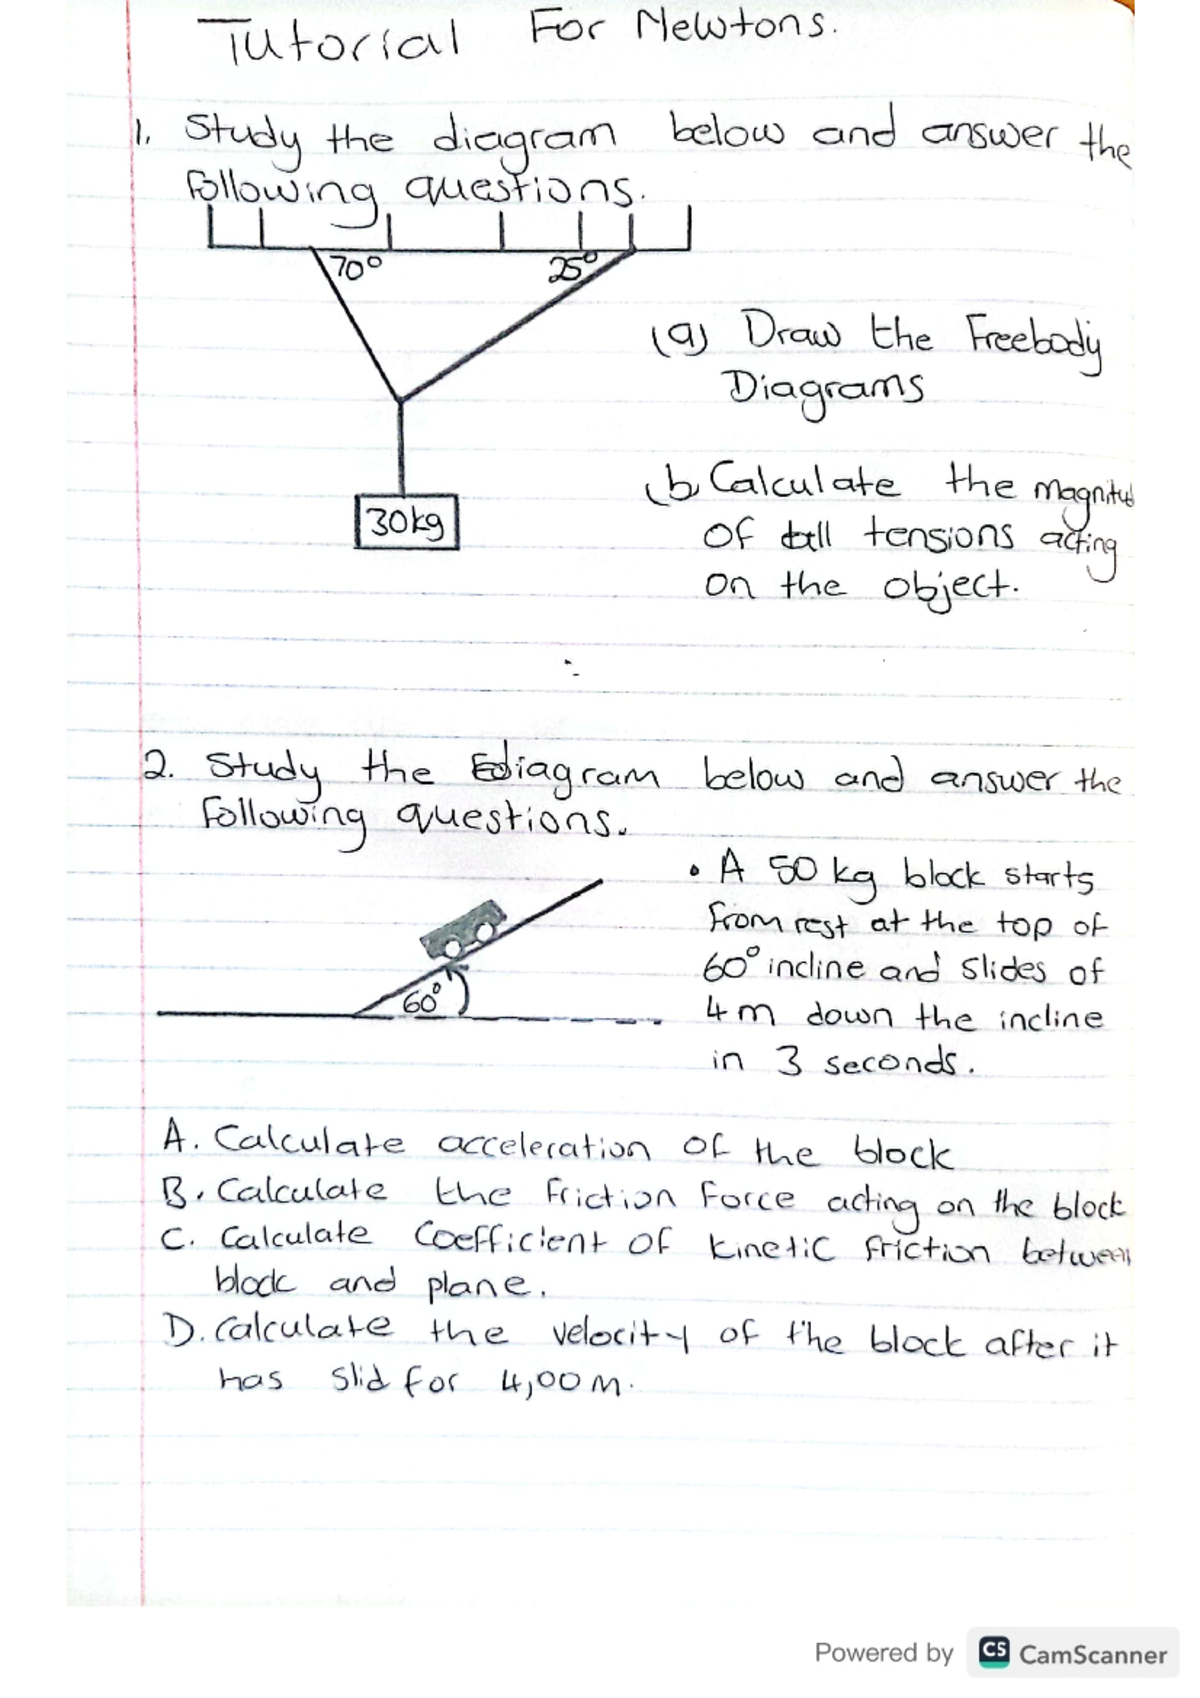 Tutorial For Newtons.
1. Study the diagram below and answer the
following questions.
70° 25°
(a) Draw the Freebody
Diagrams
(b Calculate the magnitud
of all tensions acting
on the object.
30kg
2. Study the diagram below and answer the
following questions.
• A 50 kg block starts
from rest at the top of
60° incline and slides of
4m down the incline
in 3 seconds.
60°
A. Calculate acceleration of the block
B. Calculate the friction force acting on the block
C. Calculate Coefficient of kinetic friction between
block and plane.
D. Calculate the velocity of the block after it
has slid for 4,00m.
Powered by CS CamScanner